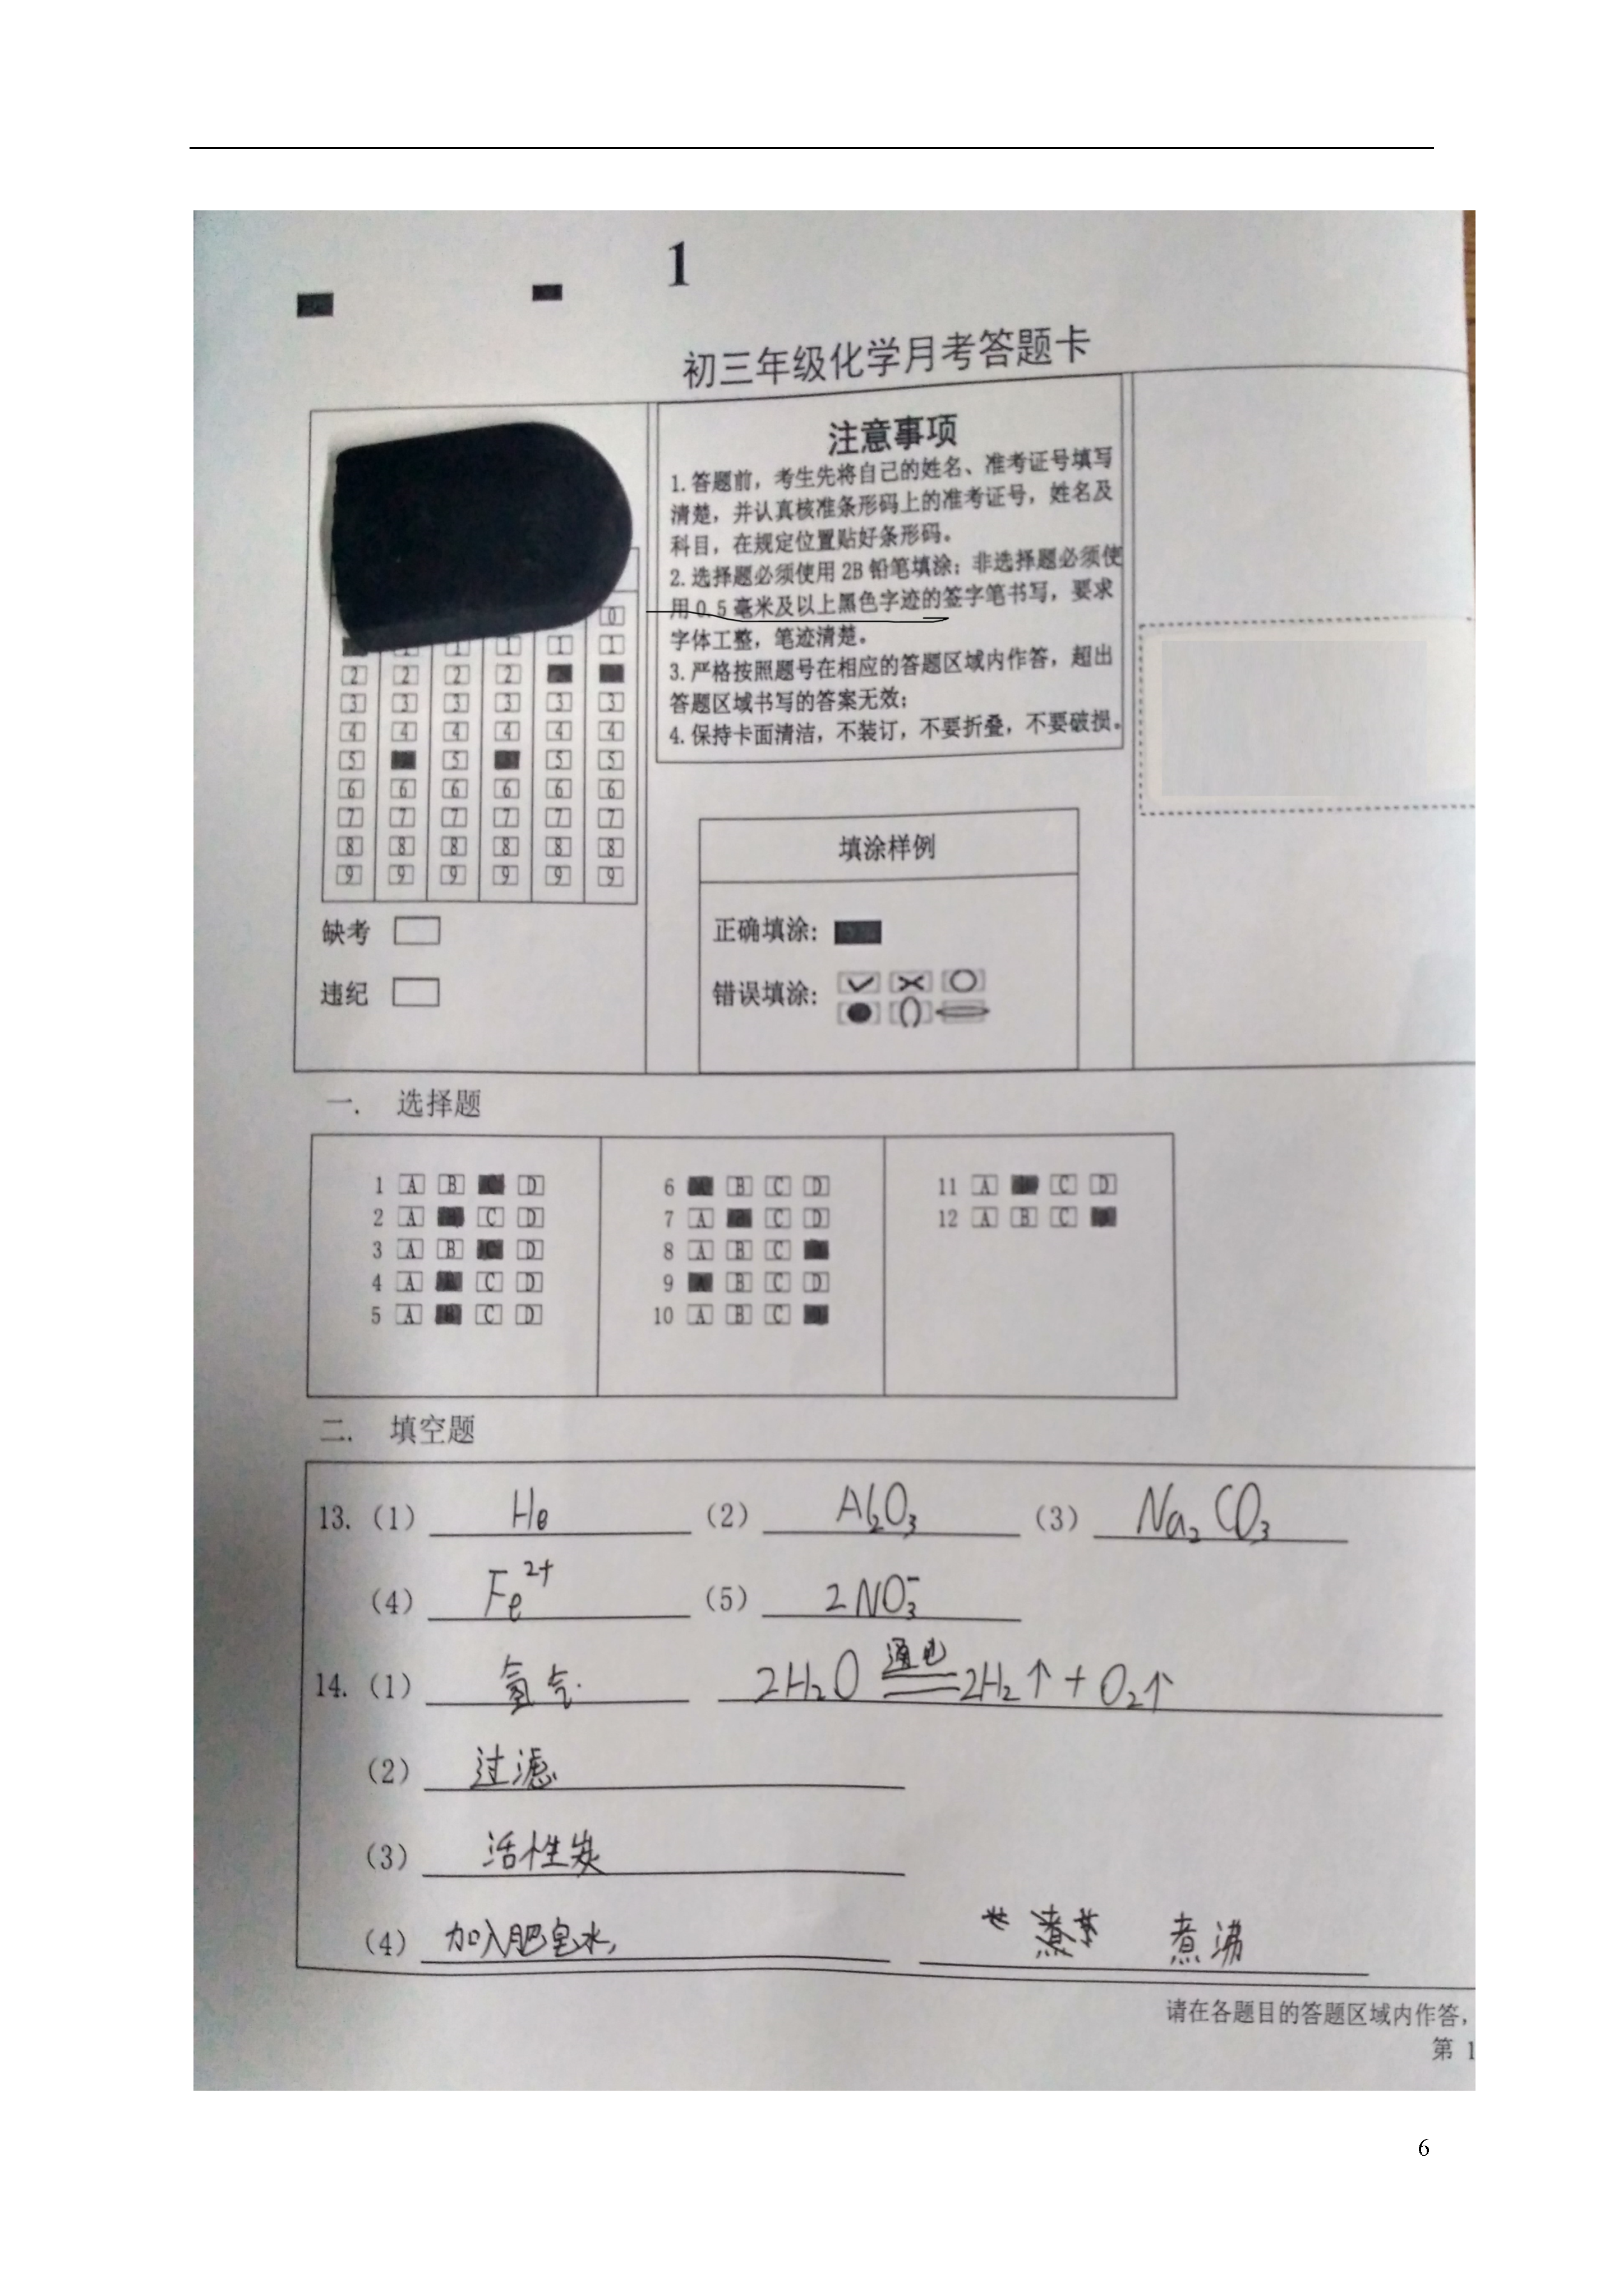 1
初三年级化学月考答题卡
注意事项
1.答题前，考生先将自己的姓名、准考证号填写
清楚，并认真核准条形码上的准考证号，姓名及
科目，在规定位置贴好条形码。
2.选择题必须使用2B铅笔填涂；非选择题必须使
用0.5毫米及以上黑色字迹的签字笔书写，要求
字体工整，笔迹清楚。
3.严格按照题号在相应的答题区域内作答，超出
答题区域书写的答案无效；
4.保持卡面清洁，不装订，不要折叠，不要破损。
0
1 1 1 1 1
2 2 2 2
3 3 3 3 3 3
4 4 4 4 4 4
5 5 5 5
6 6 6 6 6 6
7 7 7 7 7 7
8 8 8 8 8 8
9 9 9 9 9 9
缺考
违纪
填涂样例
正确填涂：
错误填涂：
一. 选择题
1 A B C D
2 A C D
3 A B C D
4 A B C D
5 A B C D
6 B C D
7 A C D
8 A B C
9 A B C D
10 A B C
11 A C D
12 A B C
二. 填空题
13.（1） He （2） Al₂O₃ （3） Na₂CO₃
（4） Fe²⁺ （5） 2NO₃⁻
14.（1） 氢气 2H₂O 通电 2H₂↑+O₂↑
（2） 过滤
（3） 活性炭
（4） 加入肥皂水， 煮沸
请在各题目的答题区域内作答，
第 1
6